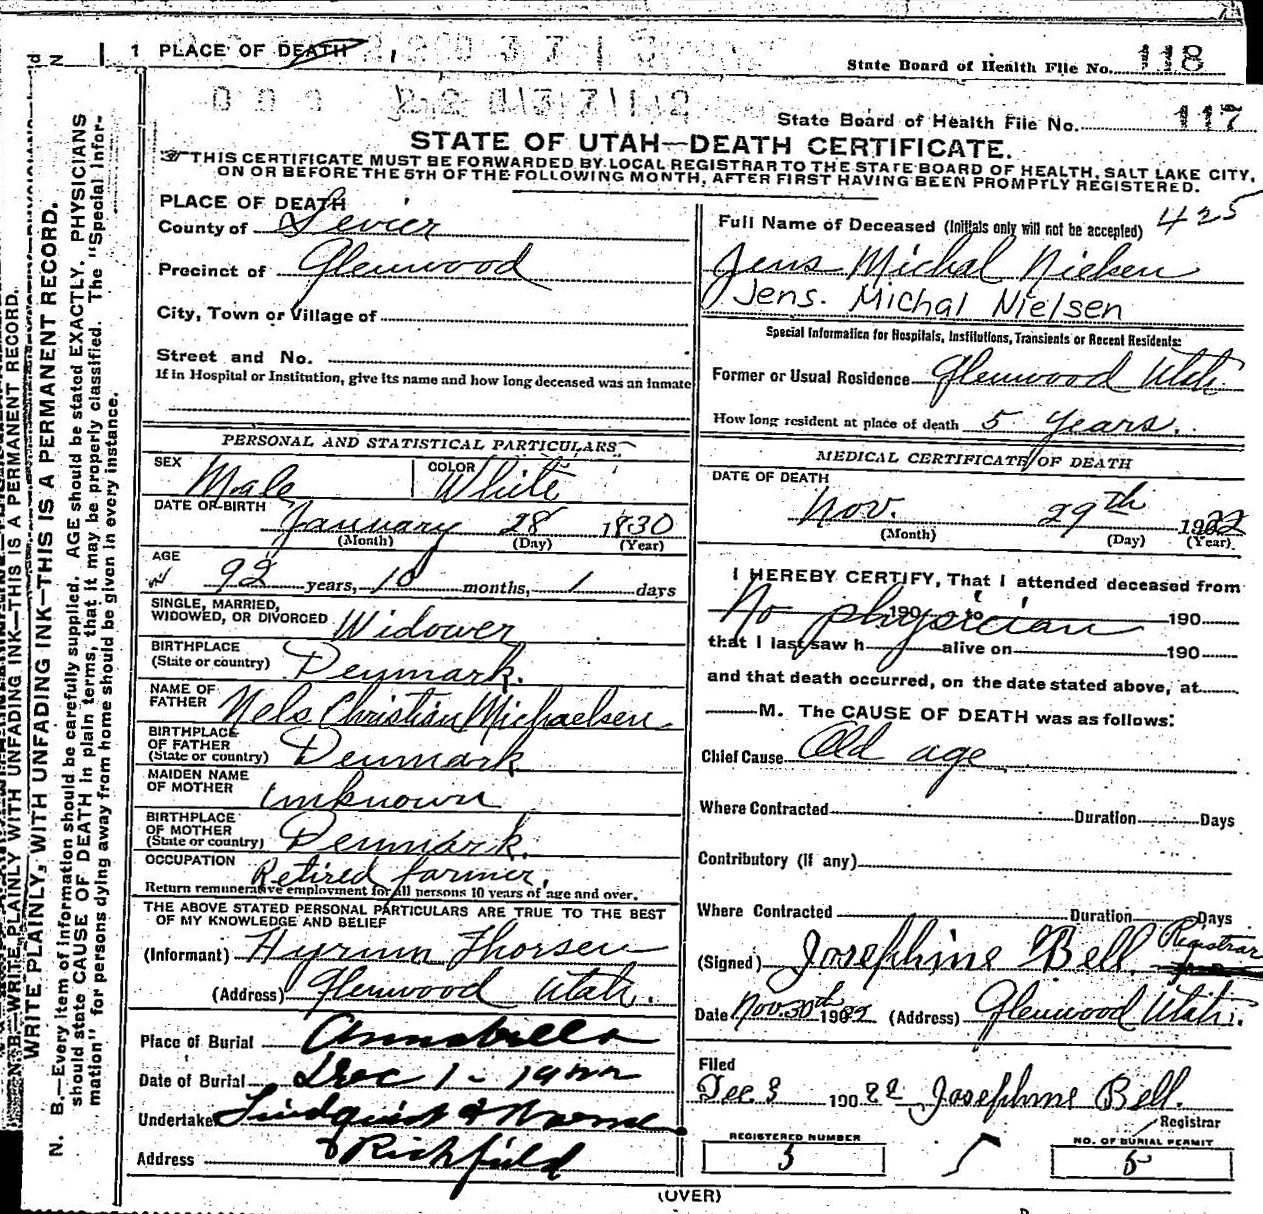 1 PLACE OF DEATH
State Board of Health File No. 118
State Board of Health File No. 117
STATE OF UTAH—DEATH CERTIFICATE.
☞THIS CERTIFICATE MUST BE FORWARDED BY LOCAL REGISTRAR TO THE STATE BOARD OF HEALTH, SALT LAKE CITY,
ON OR BEFORE THE 5TH OF THE FOLLOWING MONTH, AFTER FIRST HAVING BEEN PROMPTLY REGISTERED.
PLACE OF DEATH
County of Sevier
Precinct of Glenwood
City, Town or Village of
Street and No.
If in Hospital or Institution, give its name and how long deceased was an inmate
PERSONAL AND STATISTICAL PARTICULARS
SEX Male COLOR White
DATE OF BIRTH January 28 1830
(Month) (Day) (Year)
AGE 92 years, 10 months, 1 days
SINGLE, MARRIED,
WIDOWED, OR DIVORCED Widower
BIRTHPLACE
(State or country) Denmark.
NAME OF
FATHER Nels Christian Michaelsen
BIRTHPLACE
OF FATHER
(State or country) Denmark
MAIDEN NAME
OF MOTHER unknown
BIRTHPLACE
OF MOTHER
(State or country) Denmark.
OCCUPATION Retired farmer.
Return remunerative employment for all persons 10 years of age and over.
THE ABOVE STATED PERSONAL PARTICULARS ARE TRUE TO THE BEST
OF MY KNOWLEDGE AND BELIEF
(Informant) Hyrum Thorsen
(Address) Glenwood Utah.
Place of Burial Annabella
Date of Burial Dec 1 - 1922
Undertaker Lindquist &
Address Richfield
425
Full Name of Deceased (Initials only will not be accepted)
Jens Michal Nielsen
Jens. Michal Nielsen
Special Information for Hospitals, Institutions, Transients or Recent Residents:
Former or Usual Residence Glenwood Utah.
How long resident at place of death 5 Years.
MEDICAL CERTIFICATE OF DEATH
DATE OF DEATH
Nov. 29th 1922
(Month) (Day) (Year)
I HEREBY CERTIFY, That I attended deceased from
No physician 190 to 190
that I last saw h alive on 190
and that death occurred, on the date stated above, at
M. The CAUSE OF DEATH was as follows:
Chief Cause Old age
Where Contracted Duration Days
Contributory (If any)
Where Contracted Duration Days
(Signed) Josephine Bell Registrar
Date Nov. 30th 1922 (Address) Glenwood Utah.
Filed
Dec 3 190 22 Josephine Bell.
Registrar
REGISTERED NUMBER
5
NO. OF BURIAL PERMIT
5
(OVER)
N. B.—WRITE PLAINLY WITH UNFADING INK—THIS IS A PERMANENT RECORD.
WRITE PLAINLY, WITH UNFADING INK—THIS IS A PERMANENT RECORD.
N. B.—Every item of information should be carefully supplied. AGE should be stated EXACTLY. PHYSICIANS
should state CAUSE OF DEATH in plain terms, that it may be properly classified. The "Special Infor-
mation" for persons dying away from home should be given in every instance.